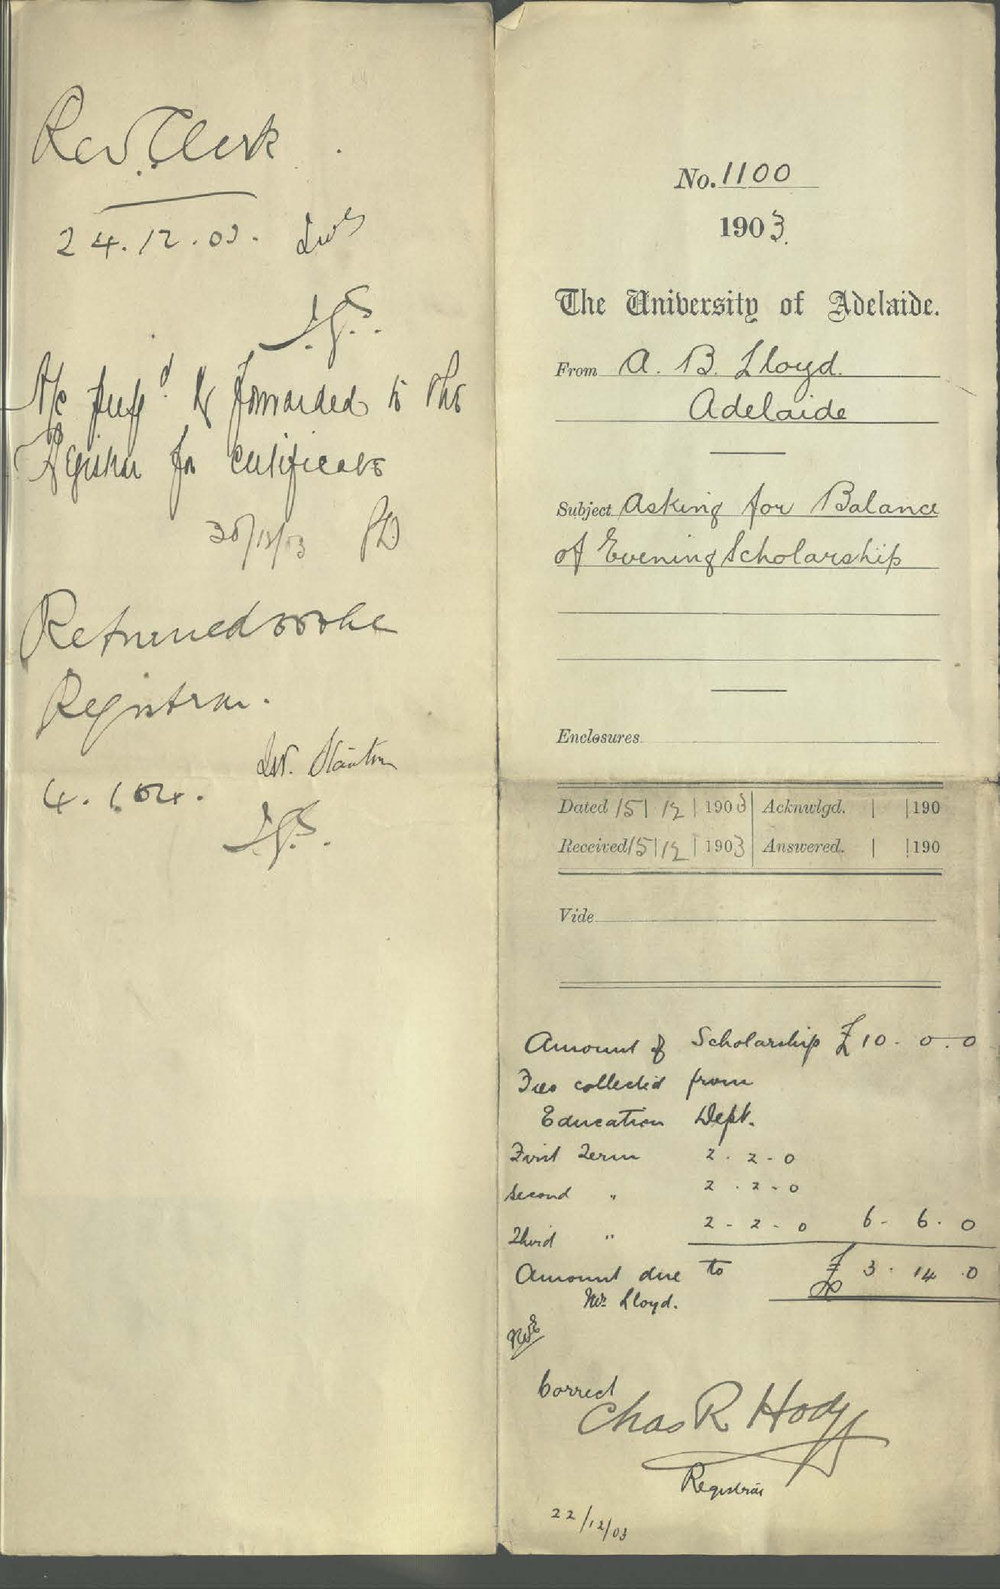 Rev. Clerk.
24.12.03.
J.G.S.
A/c forwarded to the
Registrar for certificate
30/12/03
Returned to the
Registrar.
4.1.04.
J.G.S.
No. 1100
1903.
The University of Adelaide.
From A. B. Lloyd.
Adelaide
Subject Asking for Balance
of Evening Scholarship
Enclosures
Dated 15|12|1903 Acknwlgd. | |190
Received 15|12|1903 Answered. | |190
Vide
Amount of Scholarship £10-0-0
Fees collected from
Education Dept.
First Term 2-2-0
Second " 2-2-0
Third " 2-2-0 6-6-0
Amount due to £3-14-0
Mr. Lloyd.
Correct
Chas R Hodge
Registrar
22/12/03